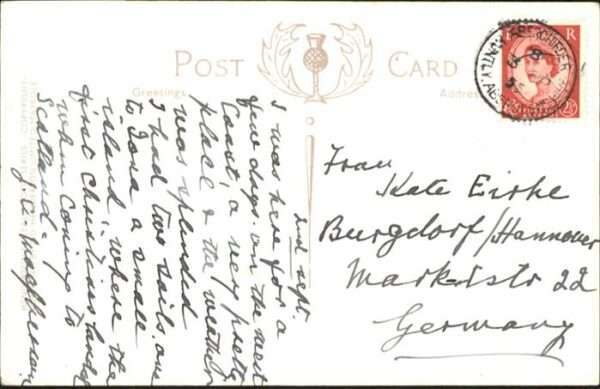 POST CARD
Greetings
Address
2nd Sept.
I was here for a
few days on the West
Coast, a very pretty
place & the weather
was splendid
I had two sails, one
to Iona a small
island, where the
first Christians landed
when coming to
Scotland.
Frau
Kate Eirke
Burgdorf/Hannover
Marktstr 22
Germany